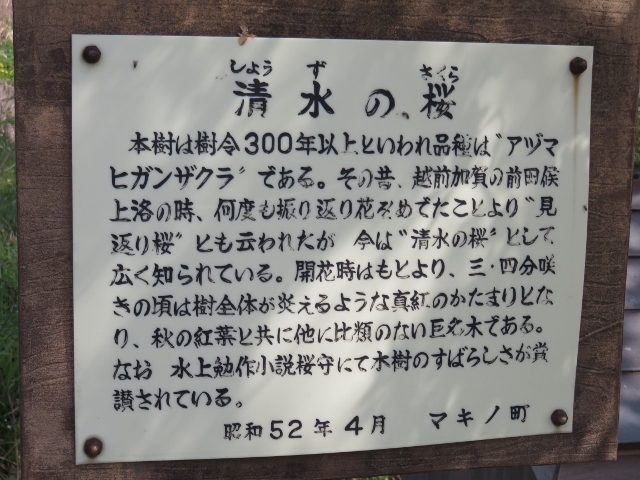 しょうず さくら
清水の桜
本樹は樹令300年以上といわれ品種は〝アヅマ
ヒガンザクラ〟である。その昔、越前加賀の前田侯
上洛の時、何度も振り返り花をめでたことより〝見
返り桜〟とも云われたが 今は〝清水の桜〟として
広く知られている。開花時はもとより、三・四分咲
きの頃は樹全体が炎えるような真紅のかたまりとな
り、秋の紅葉と共に他に比類のない巨名木である。
なお 水上勉作小説桜守にて本樹のすばらしさが賞
讃されている。
昭和52年4月 マキノ町